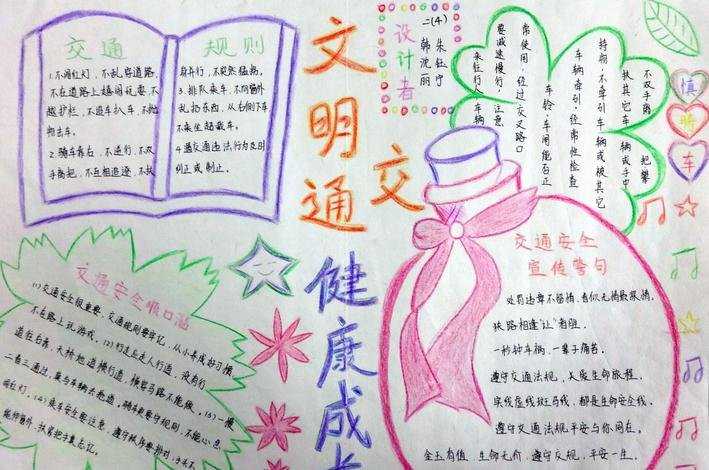 文明交通
健康成长
设计者
二(4)
朱钰宁
韩沈丽
交通规则
1.不闯红灯,不乱穿道路,
不在道路上嬉闹玩耍不
越护栏,不追车扒车,不抛
物击车。
2.骑车靠右,不逆行,不双
手离把,不互相追逐,不扶
身并行,不突然猛拐。
3.排队乘车,不向窗外
乱扔东西,从右侧下车
不乘坐超载车。
4.遇交通违法行为立即
纠正或制止。
常使用,经过交叉路口
要减速慢行,注意
来往行人、车辆
车铃、车闸能否正
车辆牵引,经常性检查
持物,不牵引车辆或被其它
扶其它车辆或手中
不双手离把攀
慎
骑
车
交通安全顺口溜
(1)交通安全很重要,交通规则要牢记,从小养成好习惯
不在路上玩游戏。(2)行走应走人行道,没有行
道往右靠,天桥地道横行道,横穿马路不能做。(3)一慢
二看三通过,莫与车辆去抢道。骑车更要守规则,不能心急
闯红灯。(4)乘车安全要注意,遵守秩序要排队,手头不
能伸窗外,扶紧把手莫忘记。
交通安全
宣传警句
处罚违章不留情,看似无情最有情。
狭路相逢“让”者胜。
一秒钟车祸,一辈子痛苦。
遵守交通法规,关爱生命旅程。
实线虚线斑马线,都是生命安全线。
遵守交通法规,平安与你同在。
金玉有值,生命无价,遵章守规,平安一生。